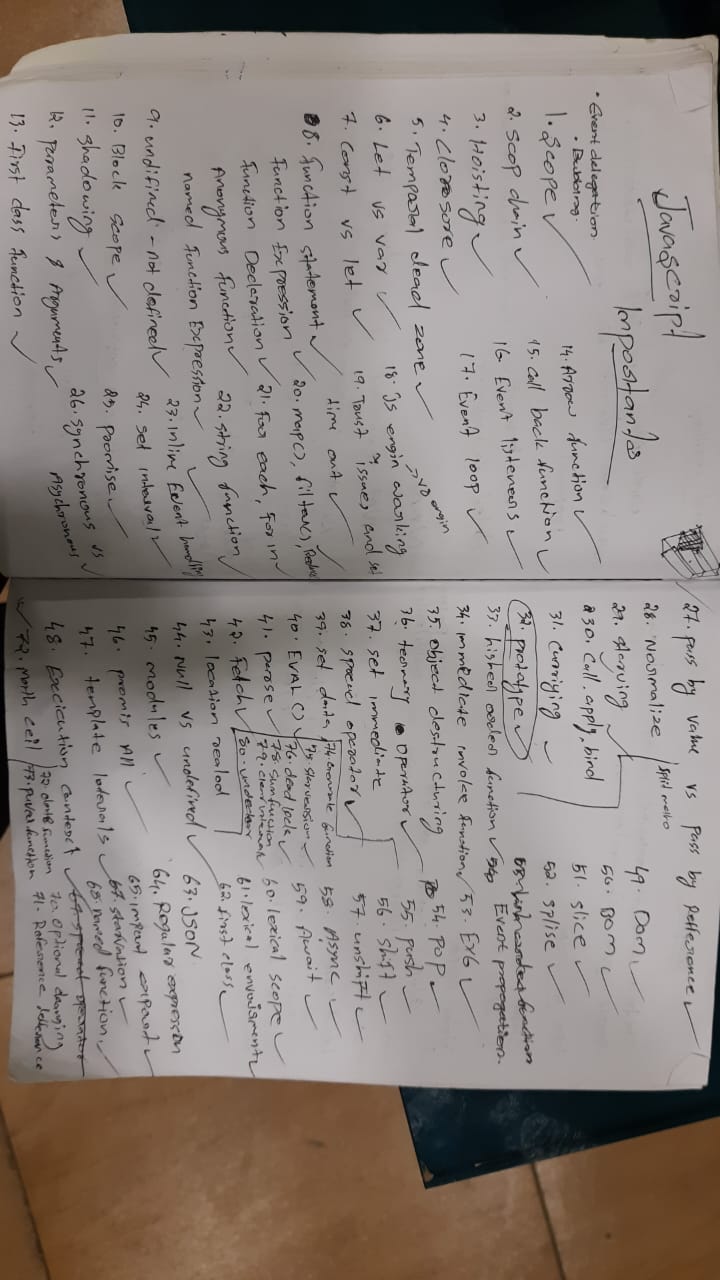 Javascript
Importants
• Event delegation
• Bubbling
1. Scope
2. Scop chain
3. Hoisting
4. Closesore
5. Temporal dead zone
6. Let vs var
7. Const vs let
8. function statement
Function Expression
Function Decleration
Anonymous function
named function Expression
9. undifined - not defined
10. Block scope
11. Shadowing
12. Parameters & Arguments
13. First class function
14. Arrow function
15. Call back function
16. Event listeners
17. Event loop
18. Js engin working
→ V8 engin
19. Trust issues and set
time out
20. map(), filter(), Reduce
21. For each, For in
22. string function
23. Inline Event handling
24. set interval
25. promise
26. Synchronous vs
Asychronous
27. pass by value vs pass by Refference
28. Normalize
29.
30. Call, apply, bind
31. Curriying
32. Prototype
33. function
34. immediate invoke function
35. object destructuring
36. ternary operator
37. set immediate
38. spread operator
39. set
40. EVAL()
41. parse
42. Fetch
43. location realod
44. Null vs undefined
45. modules
46. promis All
47. template laterals
48. Excicution context
49. Dom
50. BOM
51. slice
52. splise
Event propogation.
53. ES6
54. POP
55. push
56. shift
57. unshift
58. Async
59. Await
60. lexical scope
61. lexical envoirment
62. first class
63. JSON
64. Regular expression
65. import export
67. starvation
68. named function
69. spread operator
70. Optional
71. Reference
72.
73. function
76. dead lock
79. clear interval